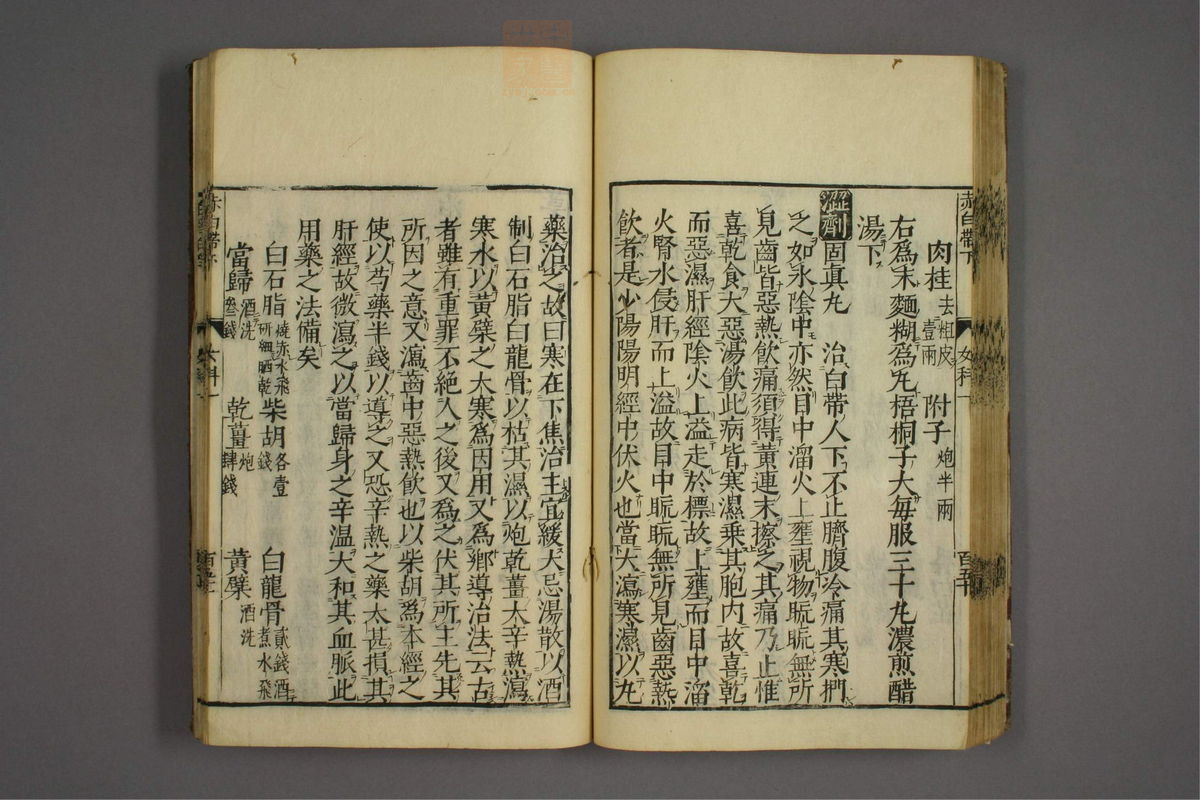 赤白帶下 女科一
肉桂去粗皮壹兩 附子炮半兩
右爲末麵糊爲丸梧桐子大每服三十九濃煎醋
湯下
澁劑 固真丸 治白帶人下不止臍腹冷痛其寒捫
之如氷陰中亦然目中溜火上壅視物𥆨𥆨無所
見齒皆惡熱飲痛須得黃連末擦之其痛乃止惟
喜乾食大惡湯飲此病皆寒濕乗其胞内故喜乾
而惡濕肝經陰火上溢走於標故上壅而目中溜
火腎水侵肝而上溢故目中𥆨𥆨無所見齒惡熱
飲者是少陽陽明經中伏火也當大瀉寒濕以丸
藥治之故曰寒在下焦治主宜緩大忌湯散以酒
制白石脂白龍骨以枯其濕以炮乾薑大辛熱瀉
寒水以黃蘗之大寒爲因用又爲鄉導治法云古
者雖有重罪不絕人之後又爲之伏其所主先其
所因之意又瀉齒中惡熱飲也以柴胡爲本經之
使以芍藥半錢以導之又恐辛熱之藥太甚損其
肝經故微瀉之以當歸身之辛温大和其血脈此
用藥之法備矣
白石脂燒赤水飛研細晒乾 柴胡各壹錢 白龍骨貳錢酒煮水飛
當歸酒洗叄錢 乾薑炮肆錢 黃蘗酒洗
赤白帶下 女科一